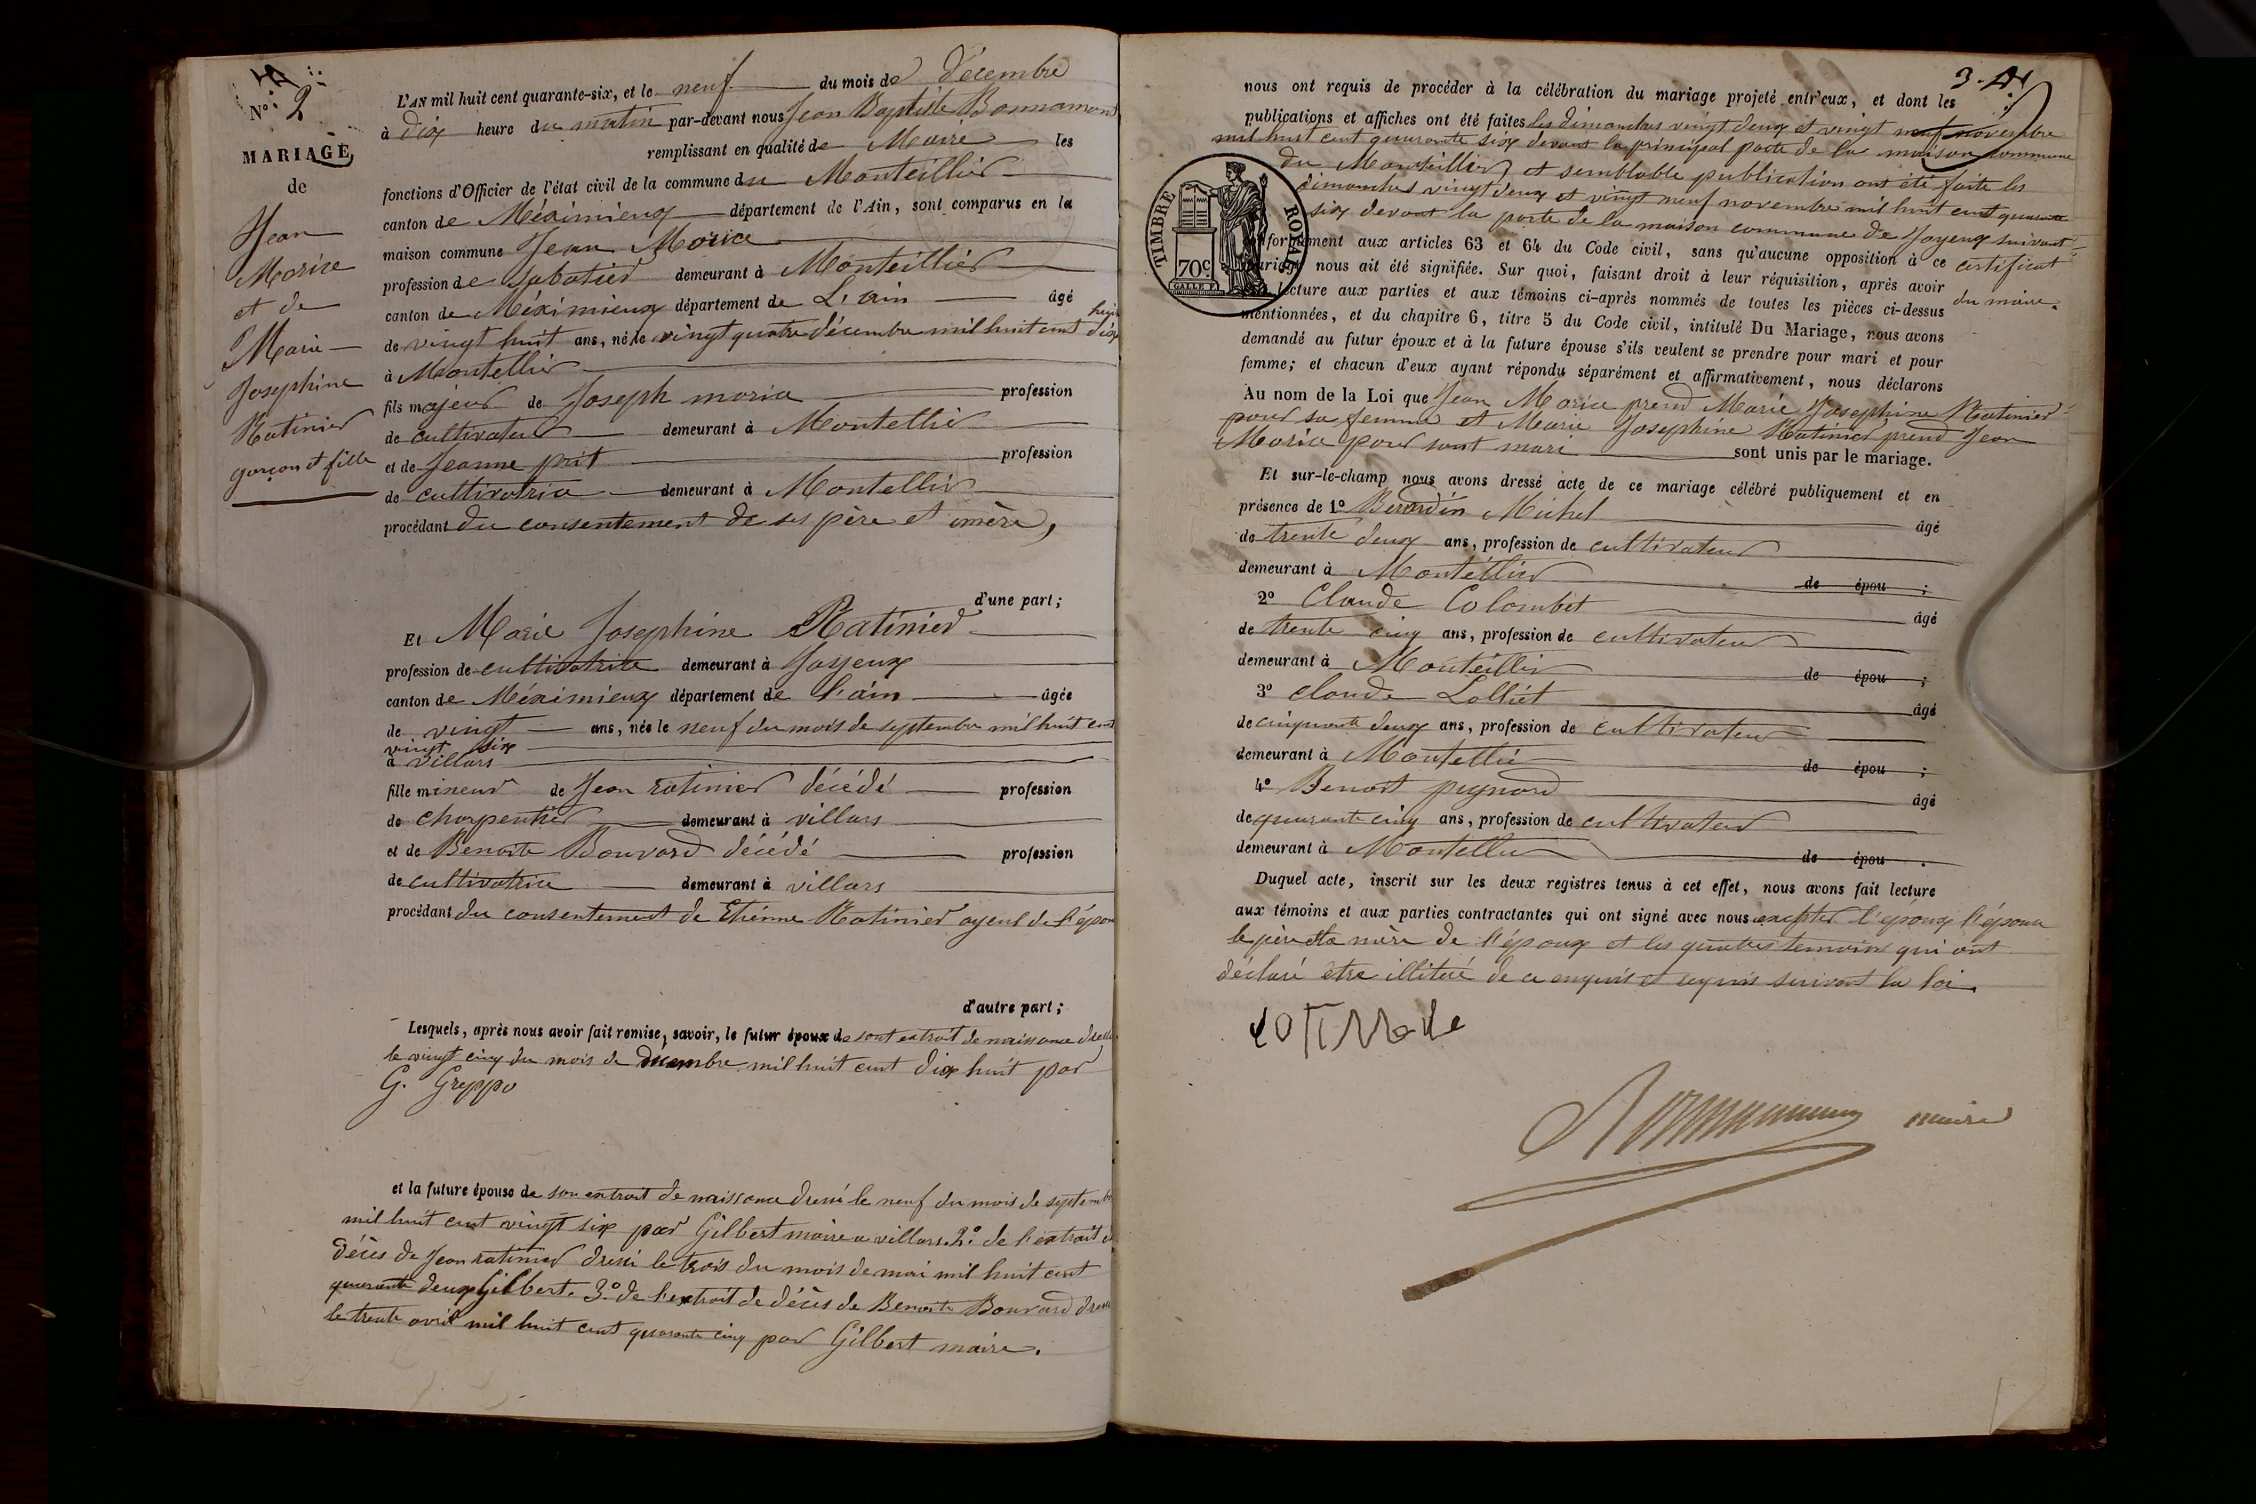 N° 2
MARIAGE
de
Jean
Morice
et de
Marie
Josephine
Ratinier
garçon et fille
L'AN mil huit cent quarante-six, et le neuf du mois de Décembre
à dix heure du matin par-devant nous Jean Baptiste Bonnamour
remplissant en qualité de Maire les
fonctions d'Officier de l'état civil de la commune du Monteillier
canton de Méximieux département de l'Ain, sont comparus en la
maison commune Jean Morice
profession de Sabatier demeurant à Monteillier
canton de Méximieux département de L'ain âgé
de vingt huit ans, né le vingt quatre décembre mil huit cent dix huit
à Montellier
fils majeur de Joseph morice profession
de cultivateur demeurant à Montellier
et de Jeanne profession
de cultivatrice demeurant à Montellier
procédant du consentement de ses père et mère,
d'une part;
Et Marie Josephine Ratinier
profession de cultivatrice demeurant à Joyeux
canton de Méximieux département de l'ain âgée
de vingt ans, née le neuf du mois de septembre mil huit cent
vingt six
à villars
fille mineur de Jean ratinier décédé profession
de charpentier demeurant à villars
et de Benoite Bouvard décédé profession
de cultivatrice demeurant à villars
procédant du consentement de Etienne Ratinier ayeul de l'épouse
d'autre part;
Lesquels, après nous avoir fait remise, savoir, le futur époux de sont extrait de naissance
le vingt cinq du mois de Decembre mil huit cent dix huit par
G. Greppo
et la future épouse de son extrait de naissance dressé le neuf du mois de septembre
mil huit cent vingt six par Gilbert maire a villars. 2° de l'extrait de
décès de Jean ratinier dressé le trois du mois de mai mil huit cent
quarante deux Gilbert. 3° de l'extrait de décès de Benoite Bouvard dressé
le trente avril mil huit cent quarante cinq par Gilbert maire.
3.
nous ont requis de procéder à la célébration du mariage projeté entr'eux, et dont les
publications et affiches ont été faites les dimanches vingt deux et vingt neuf novembre
mil huit cent quarante six devant la principal porte de la maison commune
du Monteillier, et semblable publication ont été faite les
dimanches vingt deux et vingt neuf novembre mil huit cent quarante
six devant la porte de la maison commune de Joyeux suivant
conformément aux articles 63 et 64 du Code civil, sans qu'aucune opposition à ce certificat
mariage nous ait été signifiée. Sur quoi, faisant droit à leur réquisition, après avoir du maire.
lecture aux parties et aux témoins ci-après nommés de toutes les pièces ci-dessus
mentionnées, et du chapitre 6, titre 5 du Code civil, intitulé Du Mariage, nous avons
demandé au futur époux et à la future épouse s'ils veulent se prendre pour mari et pour
femme; et chacun d'eux ayant répondu séparément et affirmativement, nous déclarons
TIMBRE ROYAL
70c
Au nom de la Loi que Jean Morice prend Marie Josephine Ratinier
pour sa femme et Marie Josephine Ratinier prend Jean
Morice pour sont mari sont unis par le mariage.
Et sur-le-champ nous avons dressé acte de ce mariage célébré publiquement et en
présence de 1° Berardin Michel âgé
de trente deux ans, profession de cultivateur
demeurant à Montellier de épou ;
2° Claude Colombet âgé
de trente cinq ans, profession de cultivateur
demeurant à Monteillier de épou ;
3° claude Lolliet âgé
de cinquante deux ans, profession de cultivateur
demeurant à Montellier de épou ;
4° Benoit pignard âgé
de quarante cinq ans, profession de cultivateur
demeurant à Montellier de épou .
Duquel acte, inscrit sur les deux registres tenus à cet effet, nous avons fait lecture
aux témoins et aux parties contractantes qui ont signé avec nous excepter l'époux l'épouse
le père et la mère de l'époux et les quatres temoins qui ont
déclaré être illitéré de ce enquis et requis suivant la loi.
maire